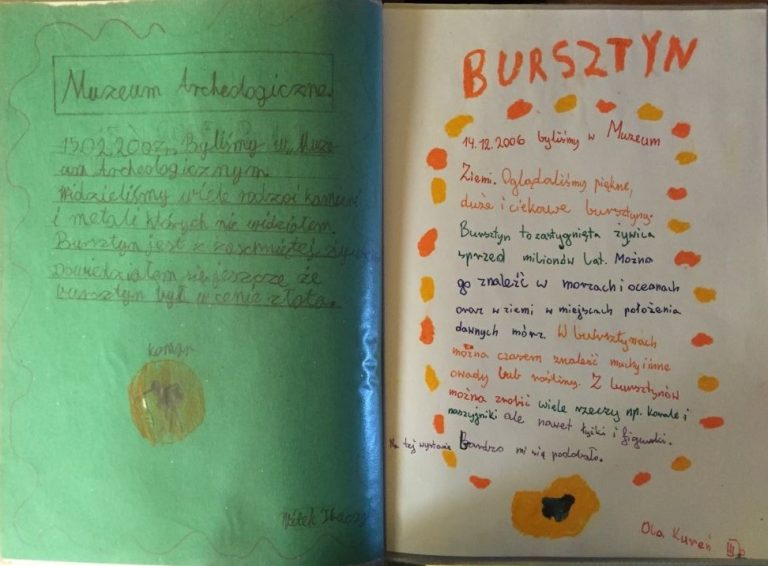 Muzeum Archeologiczne.
15.02.2007r. Byliśmy w Muze
um Archeologicznym.
Widzieliśmy wiele rodzai kamieni
i metali których nie widziałem.
Bursztyn jest z
powiedziałem się jeszcze że
bursztyn był w cenie złota.
komar
Witek
BURSZTYN
14.12.2006 byliśmy w Muzeum
Ziemi. Oglądaliśmy piękne,
duże i ciekawe bursztyny.
Bursztyn to zastygnięta żywica
sprzed milionów lat. Można
go znaleźć w morzach i oceanach
oraz w ziemi w miejscach położenia
dawnych mórz. W bursztynach
można czasem znaleść muchy i inne
owady lub rośliny. Z bursztynów
można zrobić wiele rzeczy np. korale i
naszyjniki ale nawet łyżki i figurki.
Na tej wystawie Bardzo mi się podobało.
Ola Kureń